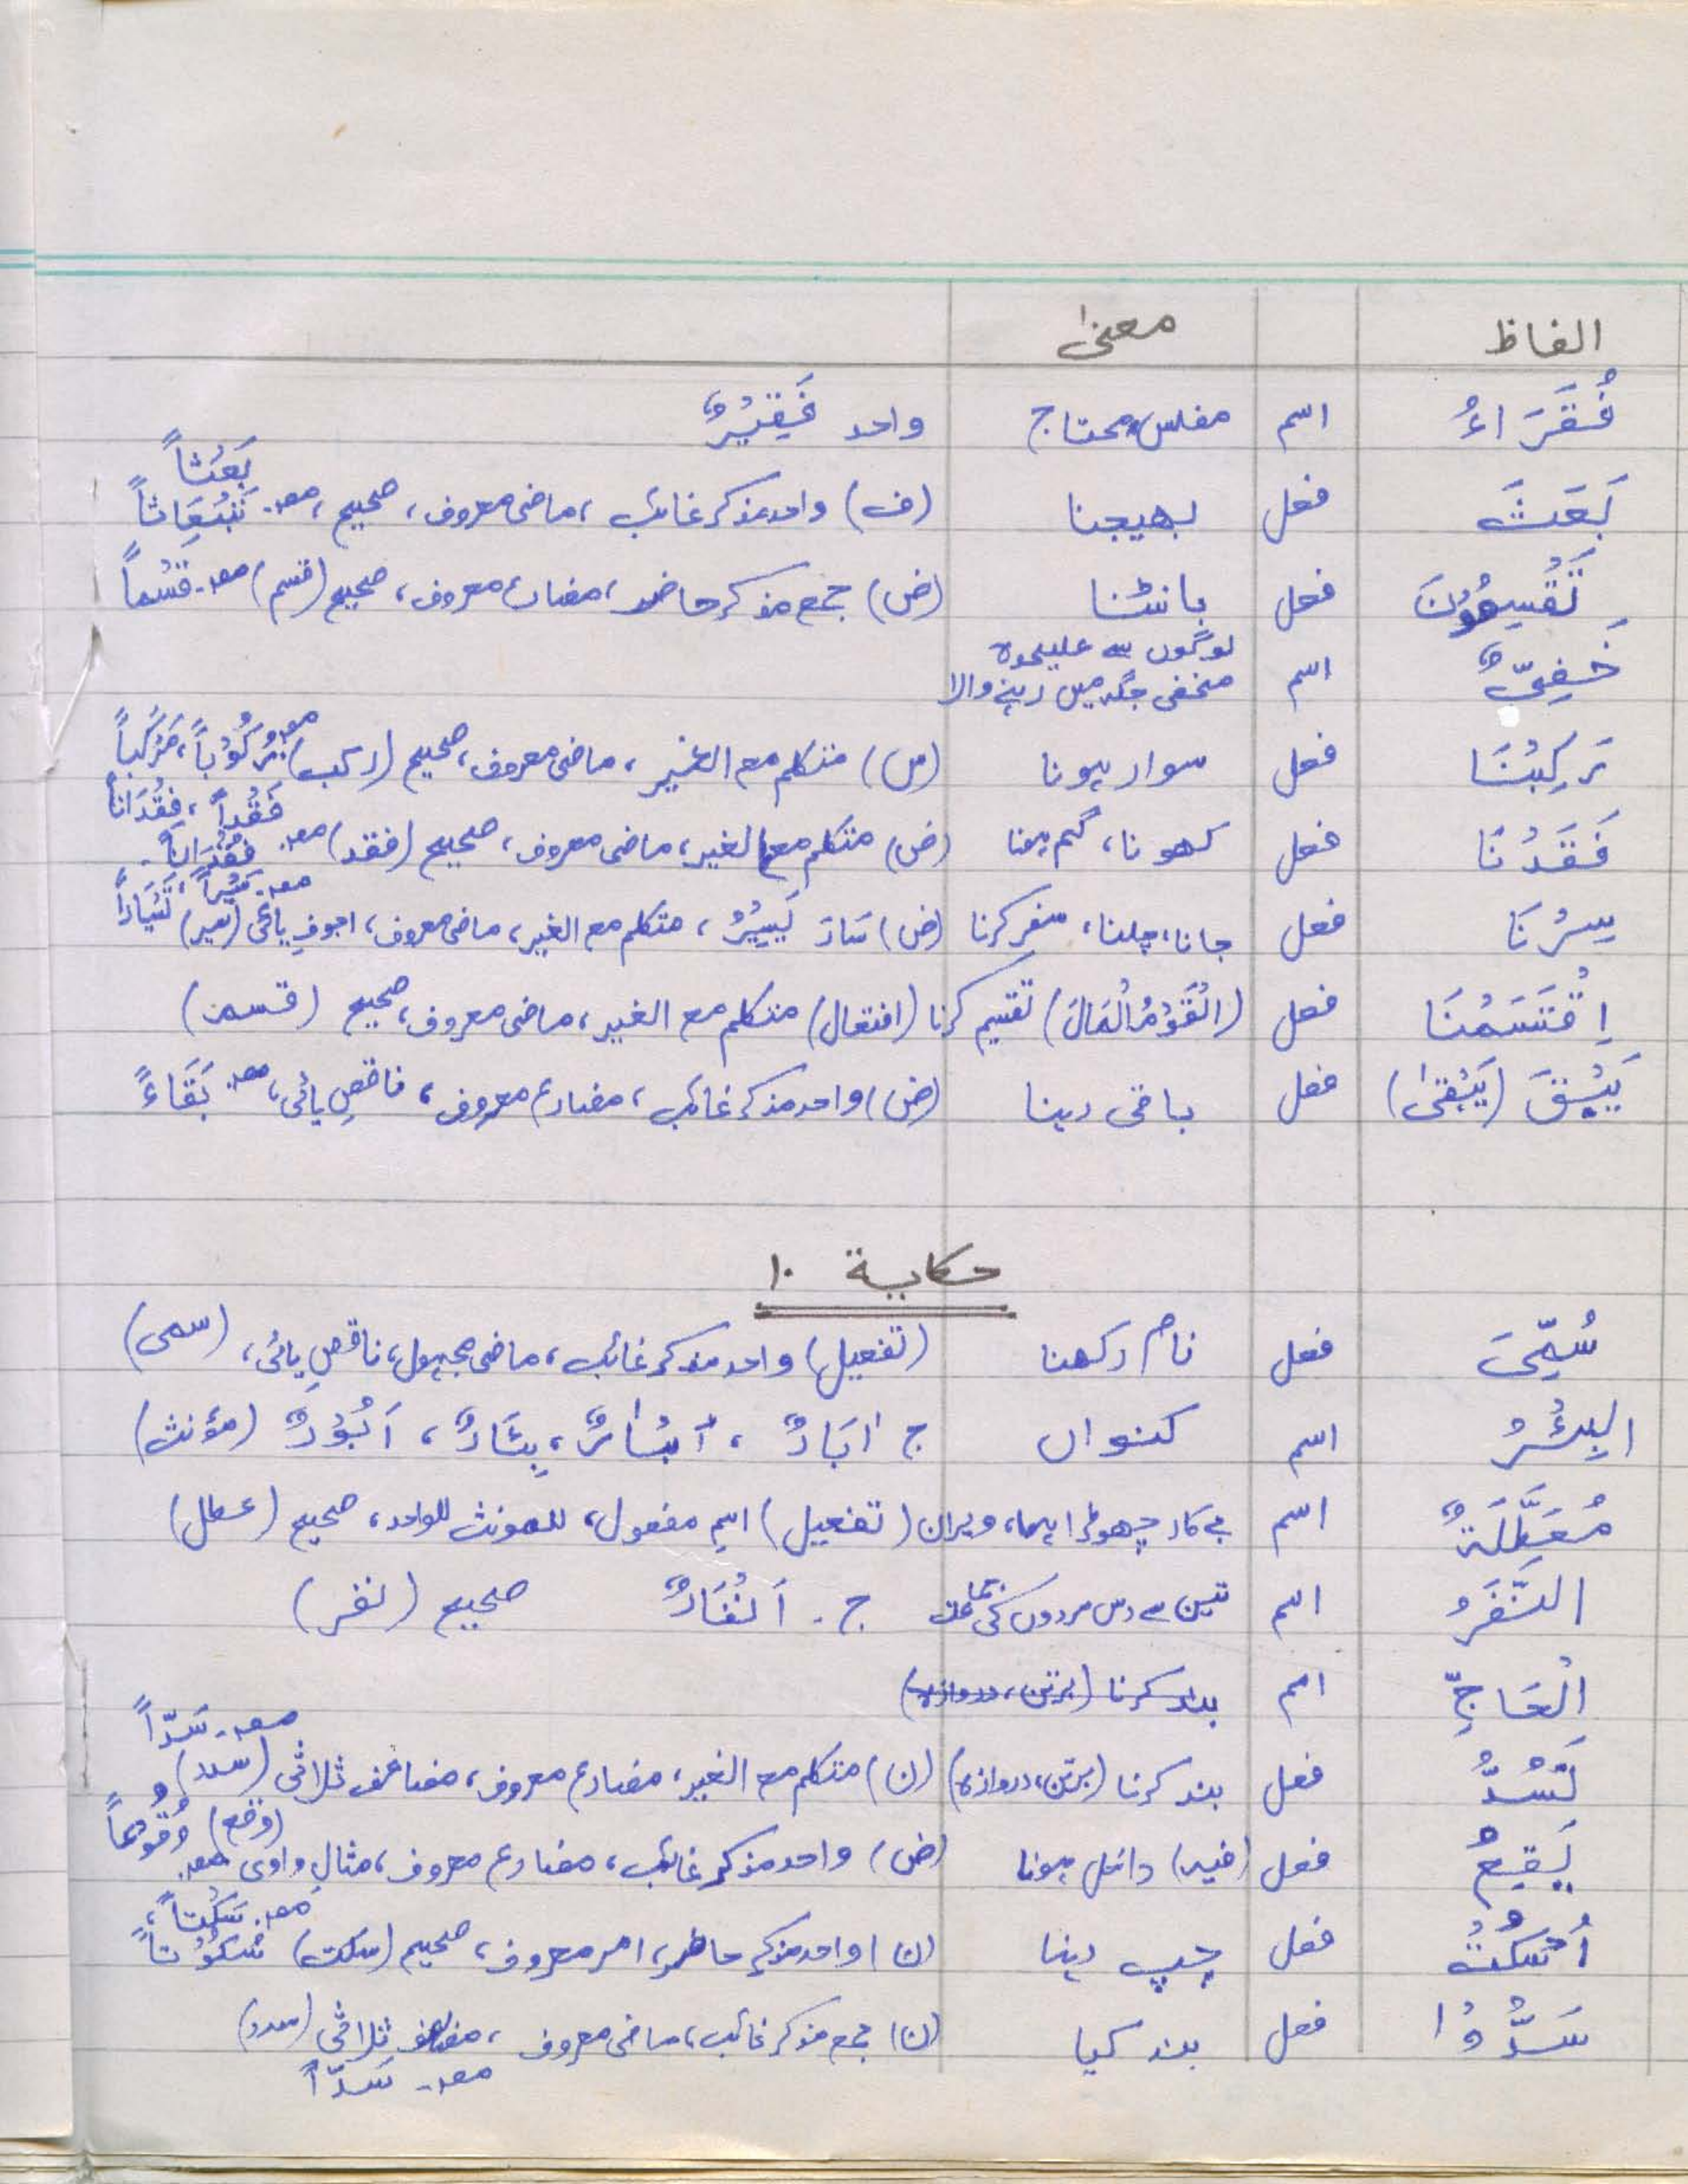 الفاظ معنیٰ
فُقَرَاءُ اسم مفلس، محتاج واحد فَقِيْرٌ
بَعَثَ فعل بھیجنا (ف) واحد مذکر غائب، ماضی معروف، صحیح، مصد۔ بَعْثاً
تَقْسِمُوْنَ فعل بانٹنا (ض) جمع مذکر حاضر، مضارع معروف، صحیح (قسم) مصد۔ قَسْماً
خَفِيٌّ اسم لوگوں سے علیحدہ مخفی جگہ میں رہنے والا
رَكِبْنَا فعل سوار ہونا (س) متکلم مع الغیر، ماضی معروف، صحیح (رکب) مصد۔ رُكُوْباً، مَرْكَباً
فَقَدْنَا فعل کھونا، گم ہونا (ض) متکلم مع الغیر، ماضی معروف، صحیح (فقد) مصد۔ فَقْداً، فِقْدَاناً فُقْدَاناً۔
سِرْنَا فعل جانا، چلنا، سفر کرنا (ض) سَارَ يَسِيْرُ، متکلم مع الغیر، ماضی معروف، اجوفِ یائی (سیر) مصد۔ سَيْراً، تَسْيَاراً
اِقْتَسَمْنَا فعل (الْقَوْمُ الْمَالَ) تقسیم کرنا (افتعال) متکلم مع الغیر، ماضی معروف، صحیح (قسم)
يَبْقَ (يَبْقىٰ) فعل باقی رہنا (ض) واحد مذکر غائب، مضارع معروف، ناقصِ یائی، مصد۔ بَقَاءً
حکایة ۱۰
سُمِّيَ فعل نام رکھنا (تفعیل) واحد مذکر غائب، ماضی مجہول، ناقصِ یائی، (سمی)
البِئْرُ اسم کنواں ج اٰبَارٌ، اَبْاٰرٌ، بِئَارٌ، اَبْؤُرٌ (مؤنث)
مُعَطَّلَةٌ اسم بے کار چھوڑا ہوا، ویران (تفعیل) اسمِ مفعول، للمونث للواحد، صحیح (عطل)
النَّفَرُ اسم تین سے دس مردوں کی جماعت ج۔ اَنْفَارٌ صحیح (نفر)
الْحَاجِّ اسم بند کرنا (برتن، دروازہ)
نَسُدُّ فعل بند کرنا (برتن، دروازہ) (ن) متکلم مع الغیر، مضارع معروف، مضاعف ثلاثی (سدد) مصد۔ سَدّاً
يَقَعُ فعل (فیہ) داخل ہونا (ض) واحد مذکر غائب، مضارع معروف، مثالِ واوی (وقع) مصد۔ وُقُوْعاً
اُسْكُتْ فعل چپ رہنا (ن) واحد مذکر حاضر، امر معروف، صحیح (سکت) مصد۔ سَكْتاً، سُكُوْتاً
سَدُّوْا فعل بند کیا (ن) جمع مذکر غائب، ماضی معروف، مضاعف ثلاثی (سدد)
مصد۔ سَدّاً